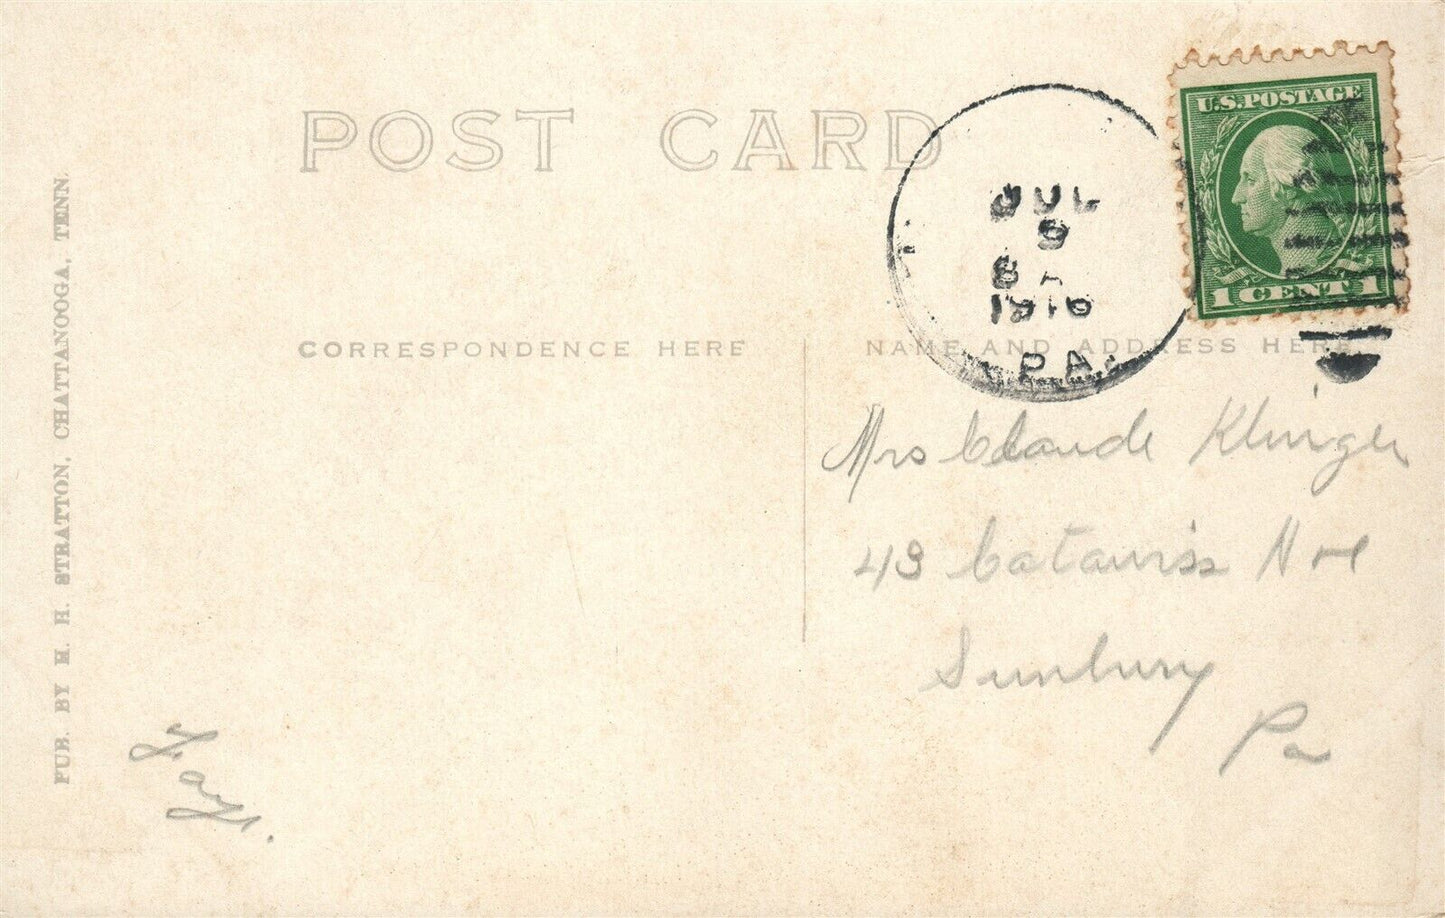 POST CARD
U.S. POSTAGE
1 CENT 1
JUL
9
8 A
1916
PA.
CORRESPONDENCE HERE
NAME AND ADDRESS HERE
Mrs Claude Klinger
43 Catawissa Ave
Sunbury
Pa
Fay.
PUB. BY H. H. STRATTON, CHATTANOOGA, TENN.